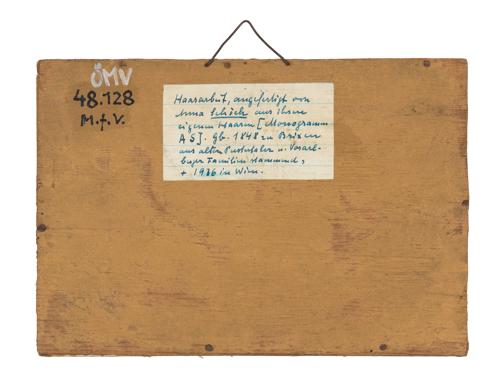 ÖMV
48.128
M.f.V.
Haararbeit, angefertigt von
Anna Schöch aus ihren
eigenen Haaren [Monogramm
A S]. Gb. 1848 zu Brixen
aus alter Pustertaler u. Vorarl-
berger Familien stammend,
+ 1936 in Wien.